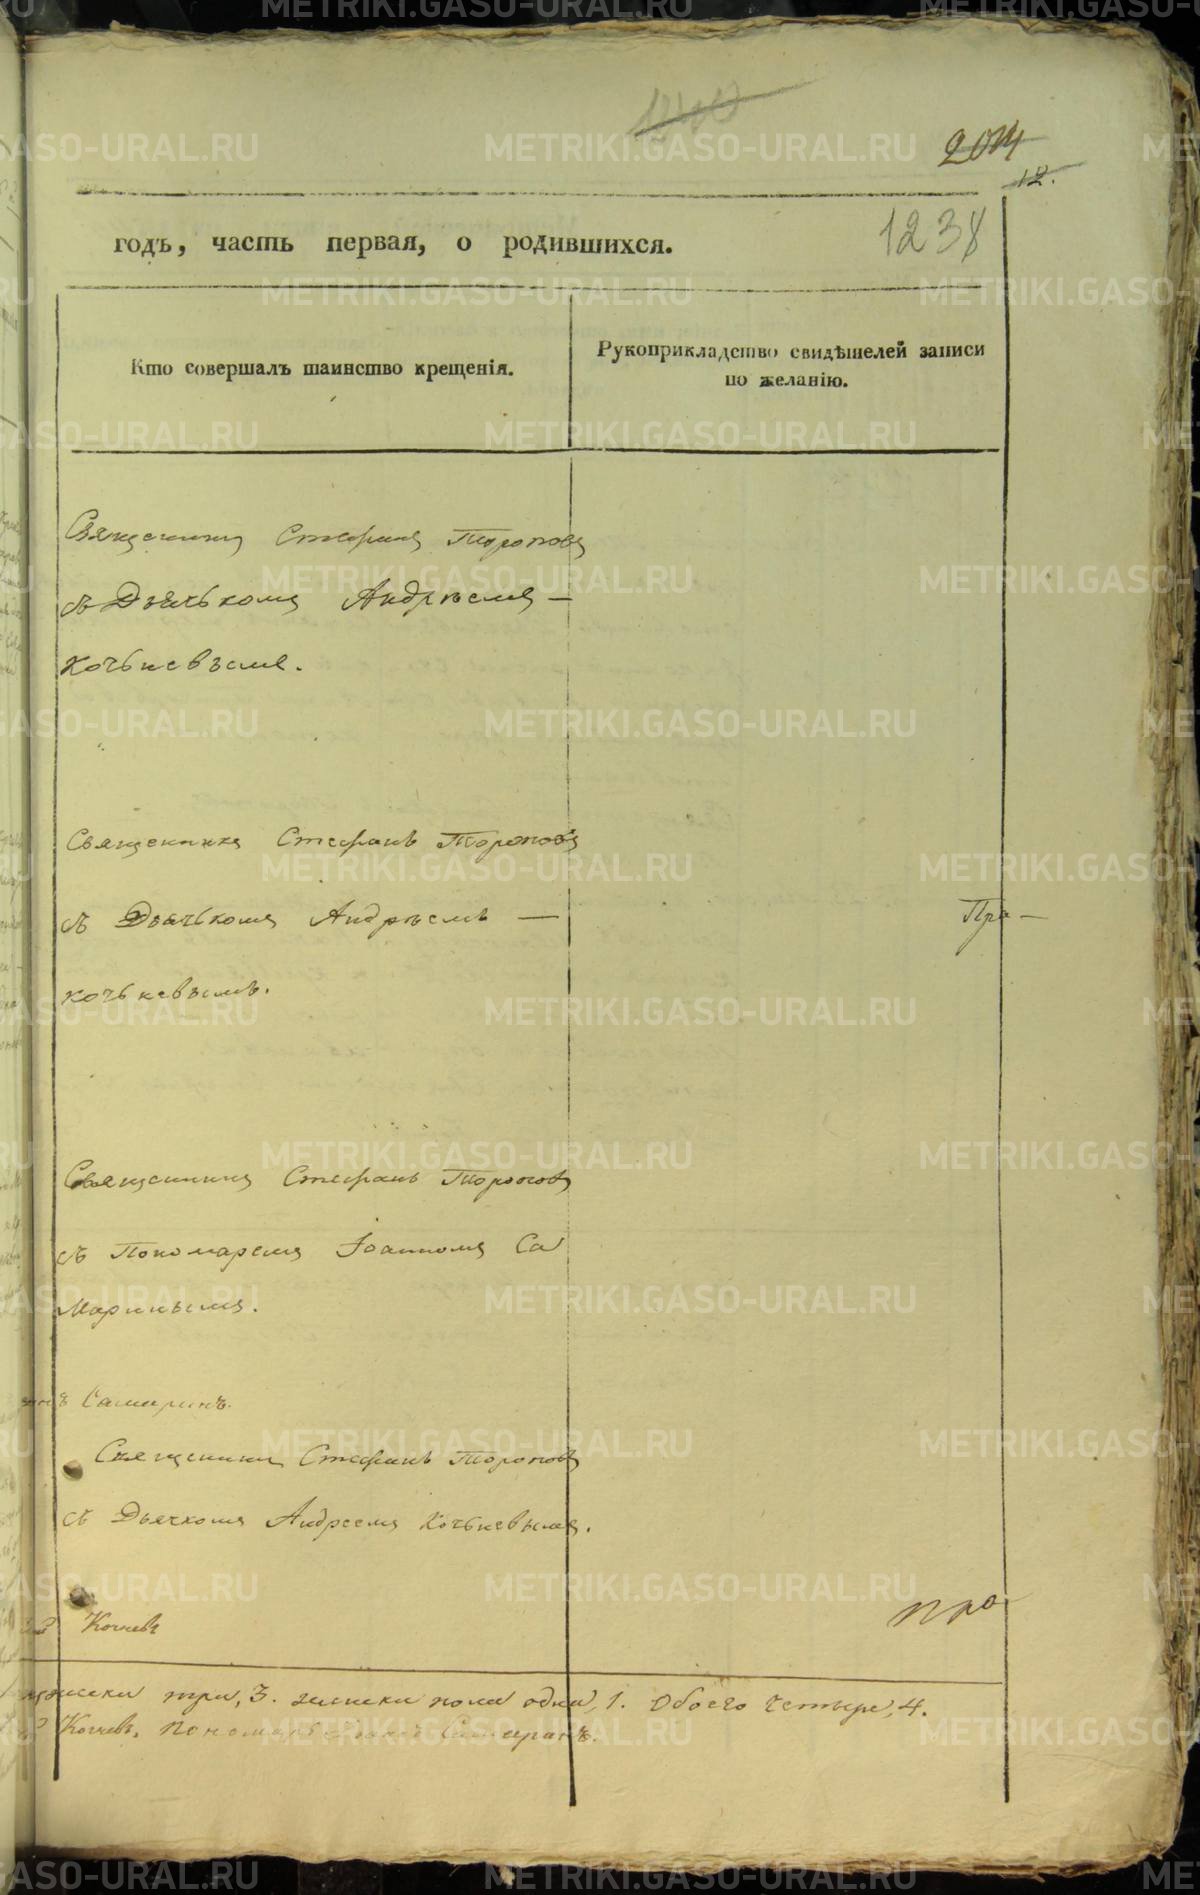 1240
2014
12.
1238
годъ, часть первая, о родившихся.
Кто совершалъ таинство крещенія.
Рукоприкладство свидѣтелей записи
по желанію.
Священникъ Стефанъ Тороповъ
съ Дьячькомъ Андрѣемъ —
Кочьневымъ.
Священникъ Стефанъ Тороповъ
съ Дьячькомъ Андрѣемъ —
Кочьневымъ.
Пра—
Священникъ Стефанъ Тороповъ
съ Пономаремъ Іоанномъ Са
маринымъ.
Самаринъ.
Священникъ Стефанъ Тороповъ
съ Дьячкомъ Андреемъ Кочьневымъ.
про
Кочневъ
мужеска три, 3. женска пола одна, 1. Обоего четыре, 4.
Кочневъ, Пономарь Іоаннъ Самаринъ.
METRIKI.GASO-URAL.RU